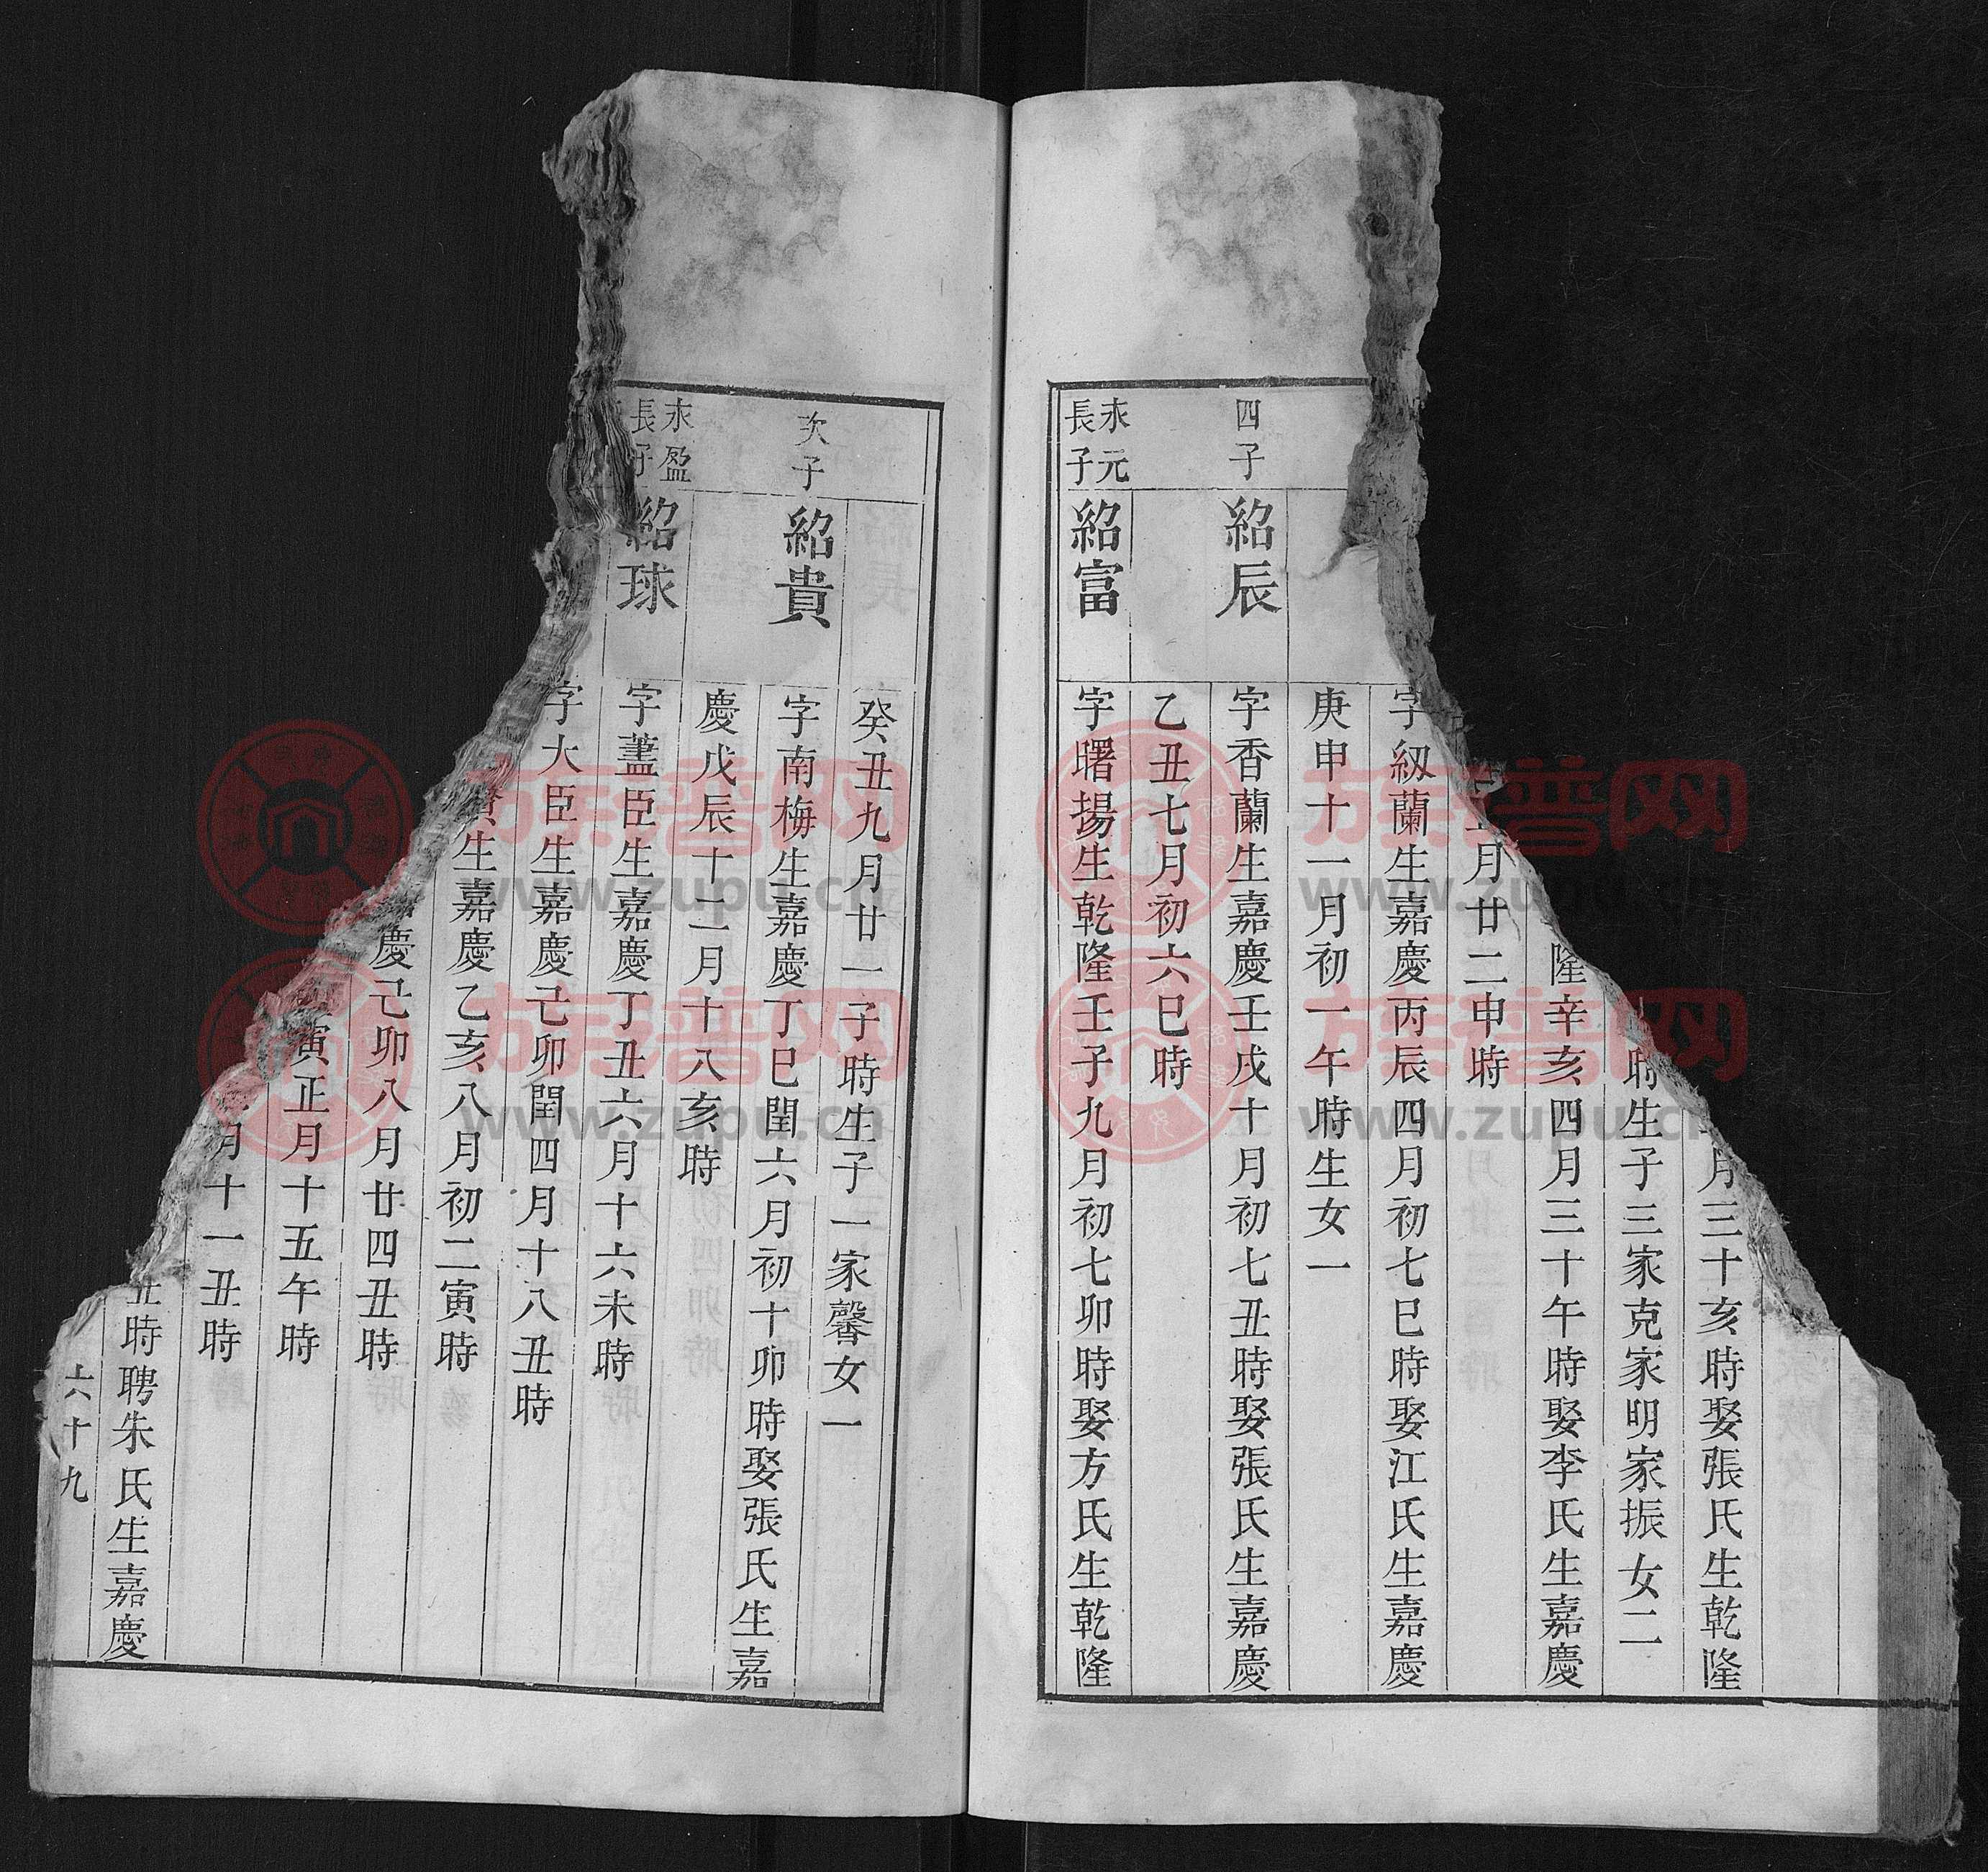 月三十亥時娶張氏生乾隆
時生子三家克家明家振女二
隆辛亥四月三十午時娶李氏生嘉慶
月廿二申時
字紉蘭生嘉慶丙辰四月初七巳時娶江氏生嘉慶
庚申十一月初一午時生女一
四子
紹辰
字香蘭生嘉慶壬戌十月初七丑時娶張氏生嘉慶
乙丑七月初六巳時
永元
長子
紹富
字曙揚生乾隆壬子九月初七卯時娶方氏生乾隆
癸丑九月廿一子時生子一家馨女一
次子
紹貴
字南梅生嘉慶丁巳閏六月初十卯時娶張氏生嘉
慶戊辰十二月十八亥時
永盈
長子
紹球
字藎臣生嘉慶丁丑六月十六未時
字大臣生嘉慶己卯閏四月十八丑時
生嘉慶乙亥八月初二寅時
慶己卯八月廿四丑時
寅正月十五午時
月十一丑時
丑時聘朱氏生嘉慶
六十九
族譜网
www.zupu.cn
族譜网
www.zupu.cn
族譜网
www.zupu.cn
族譜网
www.zupu.cn